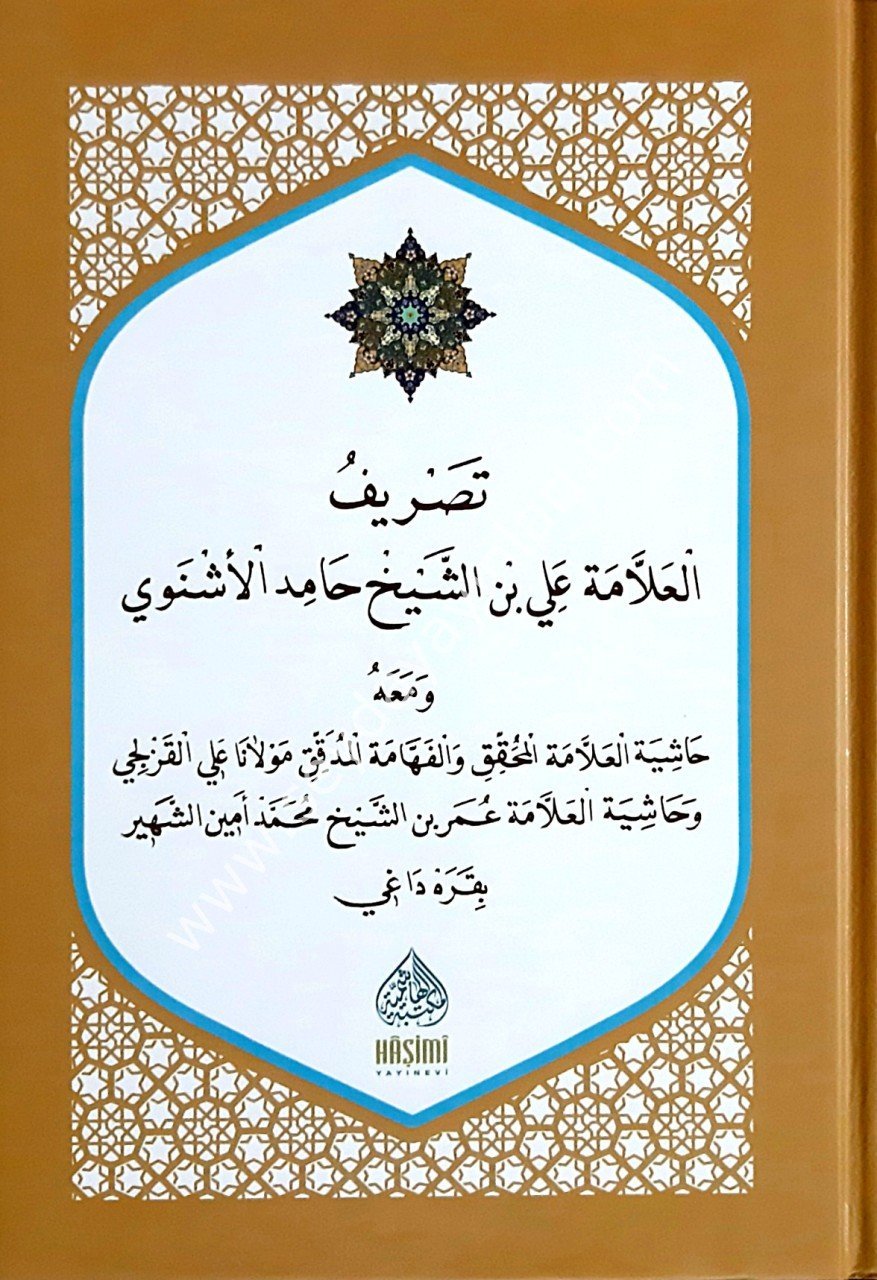 تَصْرِيفُ
الْعَلَّامَة عَلِي بْنِ الشَّيْخْ حَامِد الْأَشْنَوِي
وَمَعَهُ
حَاشِيَة الْعَلَّامَة الْمُحَقِّقِ وَالْفَهَّامَة الْمُدَقِّقِ مَوْلَانَا عَلِي الْقَزْلِجِي
وَحَاشِيَة الْعَلَّامَة عُمَر بن الشَّيْخ مُحَمَّدْ أَمِين الشَّهِير
بِقَرَهْ دَاغِي
المكتبة الهاشمية
HÂŞİMÎ
YAYINEVİ